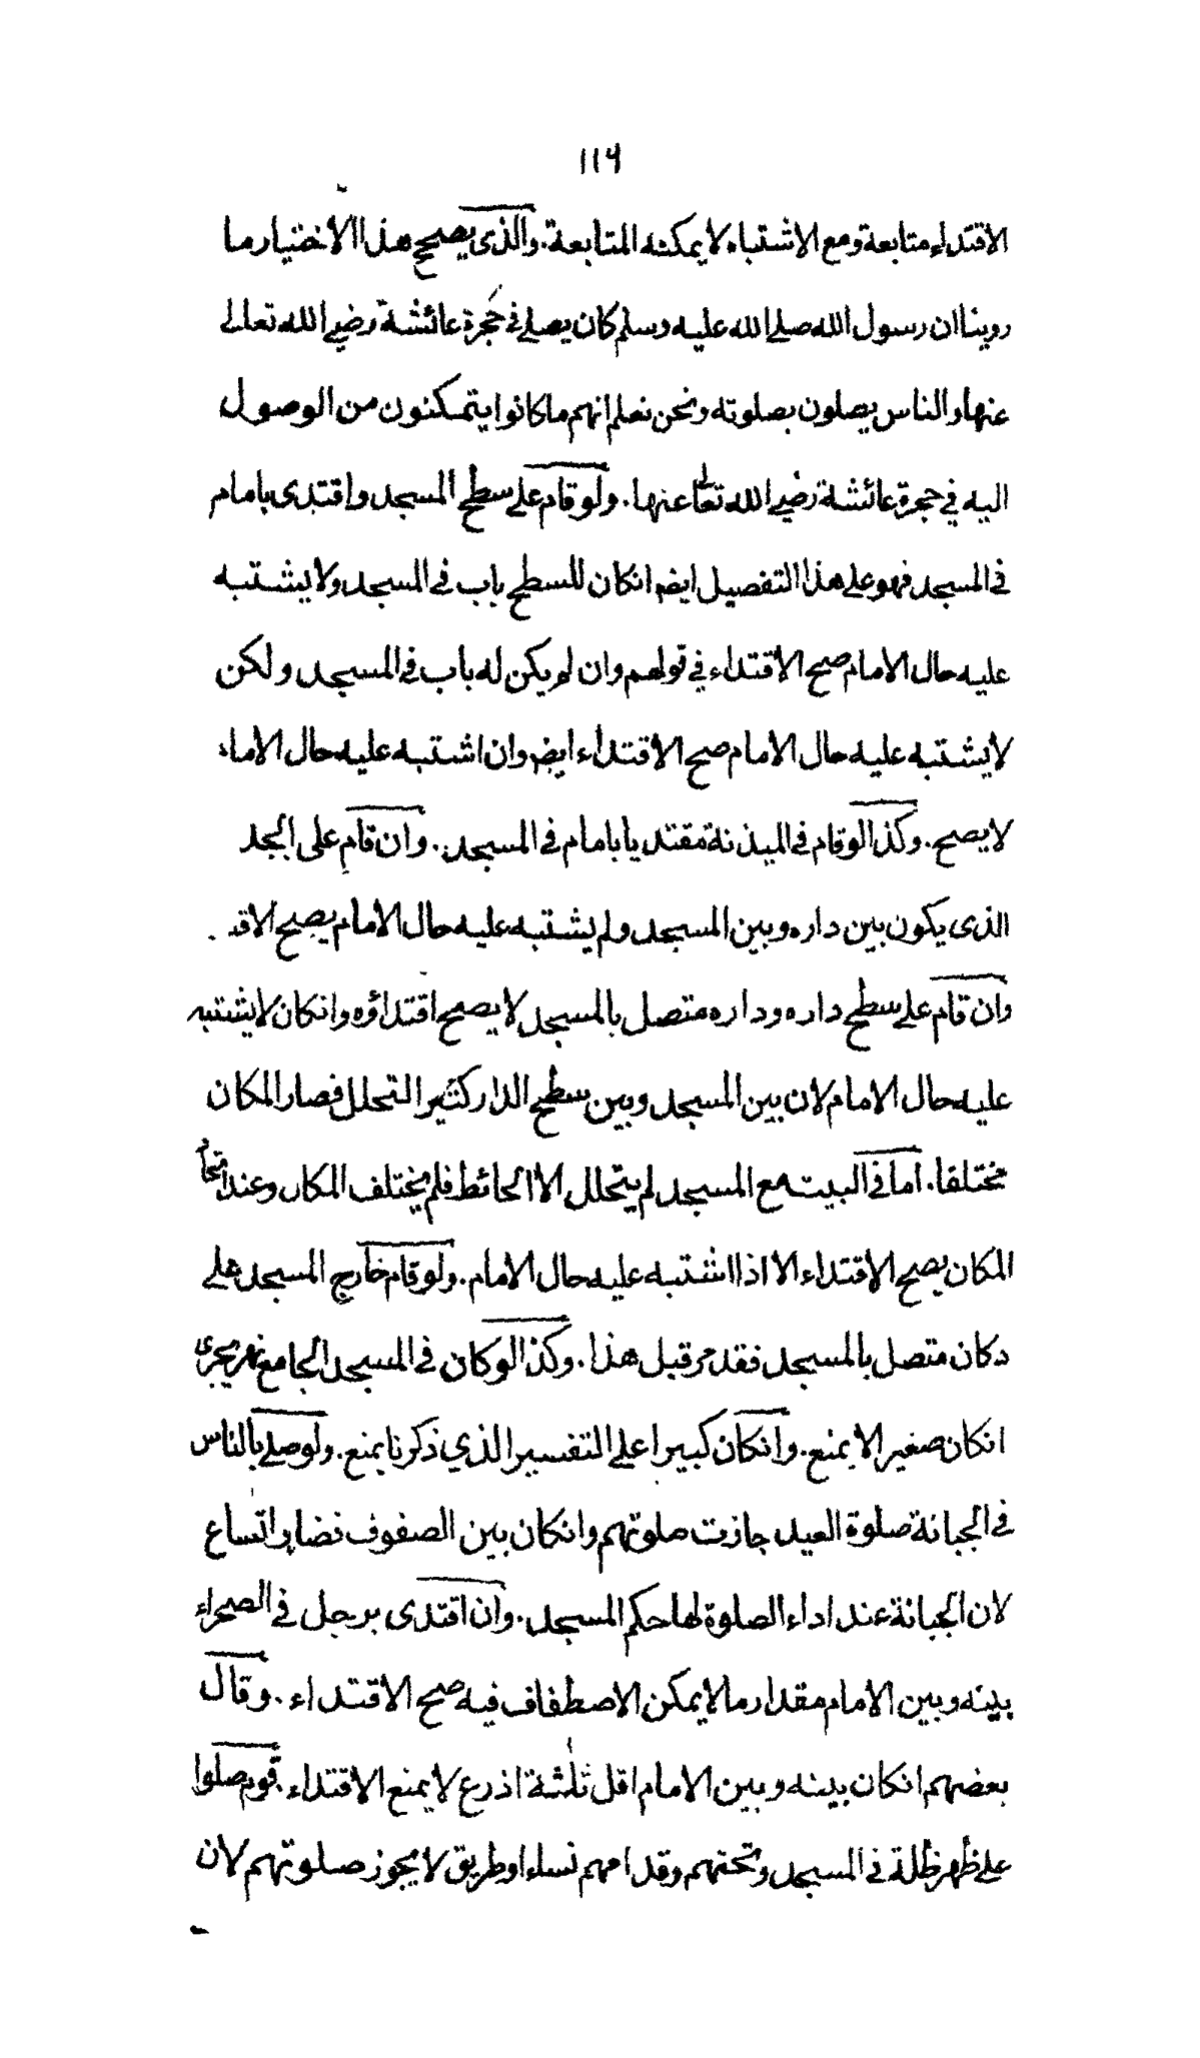 ١١٩
الاقتداء متابعة ومع الاشتباه لا يمكنه المتابعة. والذى يصحح هذا الاختيار ما
روينا ان رسول الله صلى الله عليه وسلم كان يصلى فى حجرة عائشة رضى الله تعالى
عنها والناس يصلون بصلوته ونحن نعلم انهم ما كانوا يتمكنون من الوصول
اليه فى حجرة عائشة رضى الله تعالى عنها. ولو قام على سطح المسجد واقتدى بامام
فى المسجد فهو على هذا التفصيل ايضا انكان للسطح باب فى المسجد ولا يشتبه
عليه حال الامام صح الاقتداء فى قولهم وان لم يكن له باب فى المسجد ولكن
لا يشتبه عليه حال الامام صح الاقتداء ايضا وان اشتبه عليه حال الامام
لا يصح. وكذا لو قام فى الميذنة مقتديا بامام فى المسجد. وان قام على الجد
الذى يكون بين داره وبين المسجد ولم يشتبه عليه حال الامام يصح الاقتد
وان قام على سطح داره وداره متصل بالمسجد لا يصح اقتداؤه وانكان لا يشتبه
عليه حال الامام لان بين المسجد وبين سطح الدار كثير التخلل فصار المكان
مختلفا. اما فى البيت مع المسجد لم يتخلل الا الحائط فلم يختلف المكان وعند اتحاد
المكان يصح الاقتداء الا اذا اشتبه عليه حال الامام. ولو قام خارج المسجد على
دكان متصل بالمسجد فقد مر قبل هذا. وكذا لو كان فى المسجد الجامع نهر يجرى
انكان صغيرا لا يمنع. وانكان كبيرا على التفسير الذي ذكرنا يمنع. ولو صلى بالناس
فى الجبانة صلوة العيد جازت صلوتهم وانكان بين الصفوف فضاء واتساع
لان الجبانة عند اداء الصلوة لها حكم المسجد. وان اقتدى برجل فى الصحراء
بينه وبين الامام مقدار ما لا يمكن الاصطفاف فيه صح الاقتداء. وقال
بعضهم انكان بينه وبين الامام اقل ثلثة اذرع لا يمنع الاقتداء. قوم صلوا
على ظهر ظلة فى المسجد وتحتهم وقدامهم نساء او طريق لا يجوز صلوتهم لان